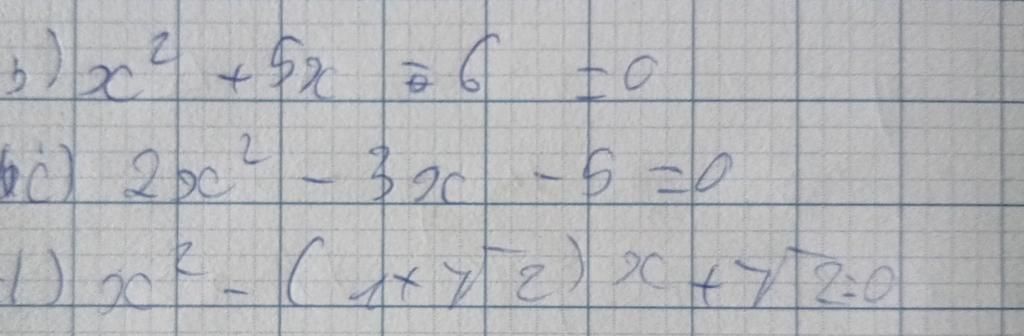 b) x² + 5x - 6 = 0
c) 2x² - 3x - 5 = 0
d) x² - (1+√2) x + √2 = 0